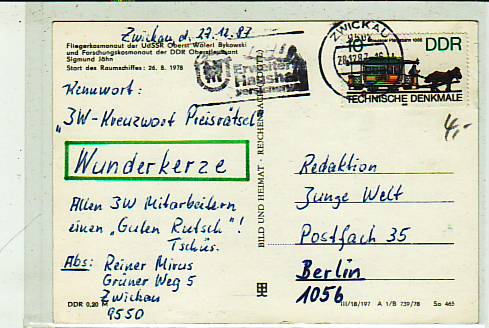 Zwickau, d. 27.12.87
Fliegerkosmonaut der UdSSR Oberst Waleri Bykowski
und Forschungskosmonaut der DDR Oberstleutnant
Sigmund Jähn
Start des Raumschiffes: 26. 8. 1978
Kennwort:
"JW-Kreuzwort Preisrätsel"
Wunderkerze
Allen JW Mitarbeitern
einen "Guten Rutsch"!
Tschüs.
Abs: Reiner Mirus
Grüner Weg 5
Zwickau
9550
DDR 0,20 M
BILD UND HEIMAT · REICHENBACH
ZWICKAU
28.12.87
10
DDR
TECHNISCHE DENKMALE
4,-
Redaktion
Junge Welt
Postfach 35
Berlin
1056
III/18/197 A 1/B 739/78 So 465